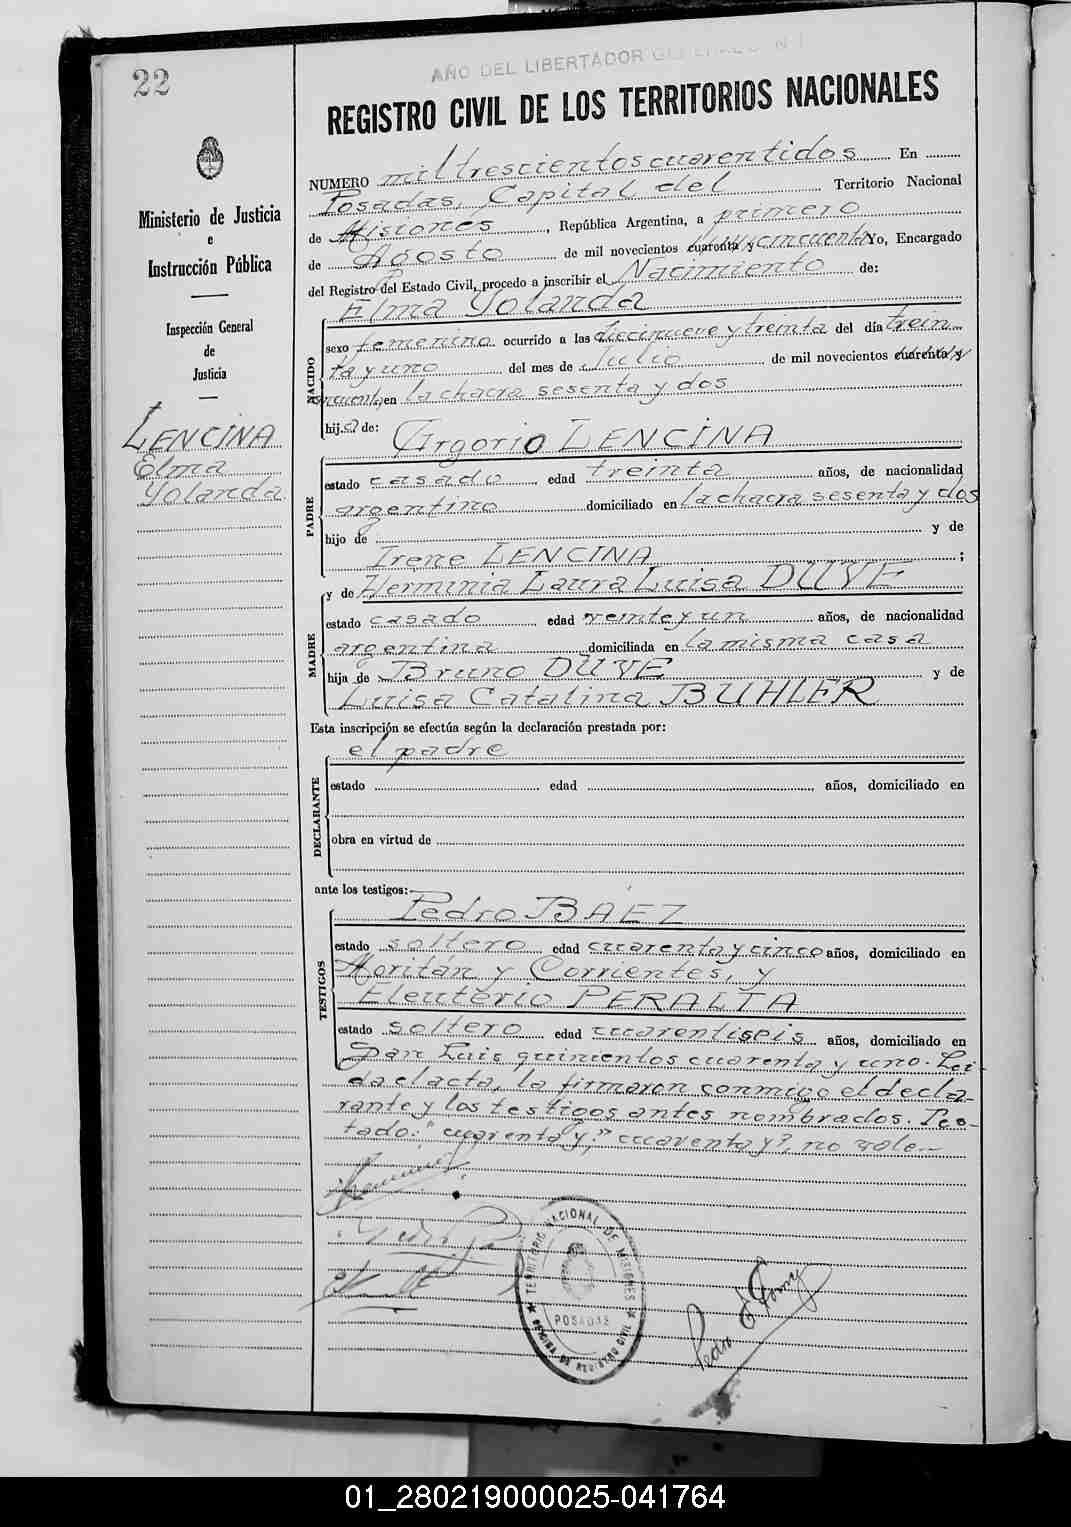 22
AÑO DEL LIBERTADOR GENERAL
REGISTRO CIVIL DE LOS TERRITORIOS NACIONALES
Ministerio de Justicia
e
Instrucción Pública
Inspección General
de
Justicia
LENCINA
Elma
Yolanda
NUMERO miltrescientoscuarentidos En
Posadas, Capital del Territorio Nacional
de Misiones, República Argentina, a primero
de Agosto de mil novecientos cuarenta y cincuenta Yo, Encargado
del Registro del Estado Civil, procedo a inscribir el Nacimiento de:
Elma Yolanda
NACIDO
sexo femenino ocurrido a las diecinueve y treinta del día trein
ta y uno del mes de Julio de mil novecientos cuarenta y
cincuenta, en la chacra sesenta y dos
hija de: Argorio LENCINA
PADRE
estado casado edad treinta años, de nacionalidad
argentino domiciliado en la chacra sesenta y dos
hijo de y de
Irene LENCINA ;
y de Herminia Laura Luisa DUVE
MADRE
estado casado edad veinte y un años, de nacionalidad
argentina domiciliada en la misma casa
hija de Bruno DUVE y de
Luisa Catalina BUHLER
Esta inscripción se efectúa según la declaración prestada por:
el padre
DECLARANTE
estado edad años, domiciliado en
obra en virtud de
ante los testigos:
Pedro BAEZ
TESTIGOS
estado soltero edad cuarenta y cinco años, domiciliado en
Moritán y Corrientes, y
Eleuterio PERALTA
estado soltero edad cuarentiseis años, domiciliado en
San Luis quinientos cuarenta y uno. Lei
da el acta, la firmaron conmigo el decla-
rante y los testigos antes nombrados. Tes-
tado: "cuarenta y," cuarenta y", no vale--
TERRITORIO NACIONAL DE MISIONES
POSADAS
OFICINA DE REGISTRO CIVIL
01_280219000025-041764